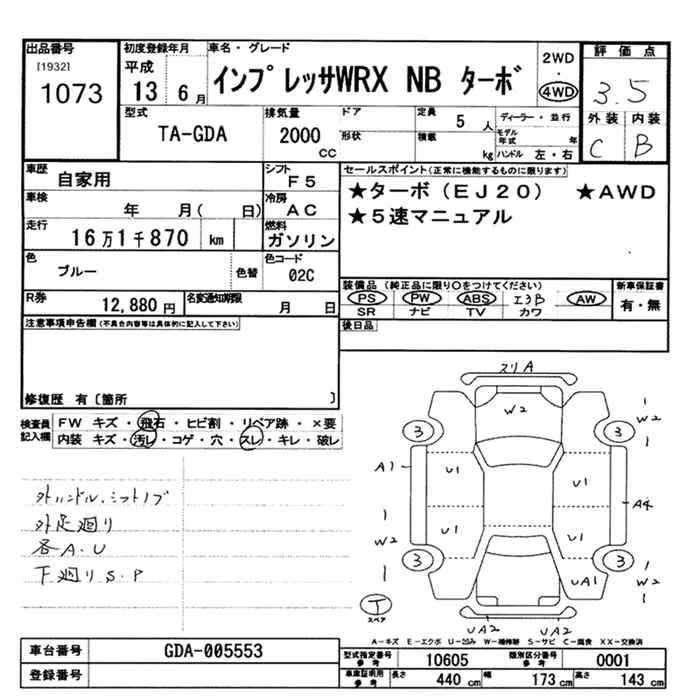 出品番号
[1932]
1073
初度登録年月
平成
13 6月
車名・グレード
インプレッサWRX NB ターボ
2WD
・
4WD
評価点
3.5
外装 内装
C B
型式
TA-GDA
排気量
2000
CC
ドア
形状
定員
5人
積載
kg
ディーラー・並行
モデル年式 年
ハンドル 左・右
車歴
自家用
シフト
F5
車検
年 月( 日)
冷房
AC
走行
16万1千870 km
燃料
ガソリン
色
ブルー
色替
色コード
02C
R券
12,880円
名変通知期限
月 日
セールスポイント(正常に機能するものに限ります)
★ターボ(EJ20) ★AWD
★5速マニュアル
装備品(純正品に限り○をつけてください)
PS PW ABS エヨB AW
SR ナビ TV カワ
新車保証書
有・無
後日品
注意事項申告欄(不具合内容等は具体的に記入して下さい)
修復歴 有〔箇所 〕
検査員記入欄
FW キズ・飛石・ヒビ割・リペア跡・×要
内装 キズ・汚レ・コゲ・穴・スレ・キレ・破レ
外ハンドル.シフトノブ
外足廻り
各A.U
下廻りS.P
スリA
W2
3
3
W2
A1
U1
U1
A4
W2
U1
U1
3
3
UA1
W2
T
スペア
UA2
UA2
A-キズ E-エクボ U-凹み W-補修跡 S-サビ C-腐食 XX-交換済
車台番号
GDA-005553
登録番号
型式指定番号
参考
10605
類別区分番号
参考
0001
車庫証明用
参考
長さ 440 cm 幅 173 cm 高さ 143 cm